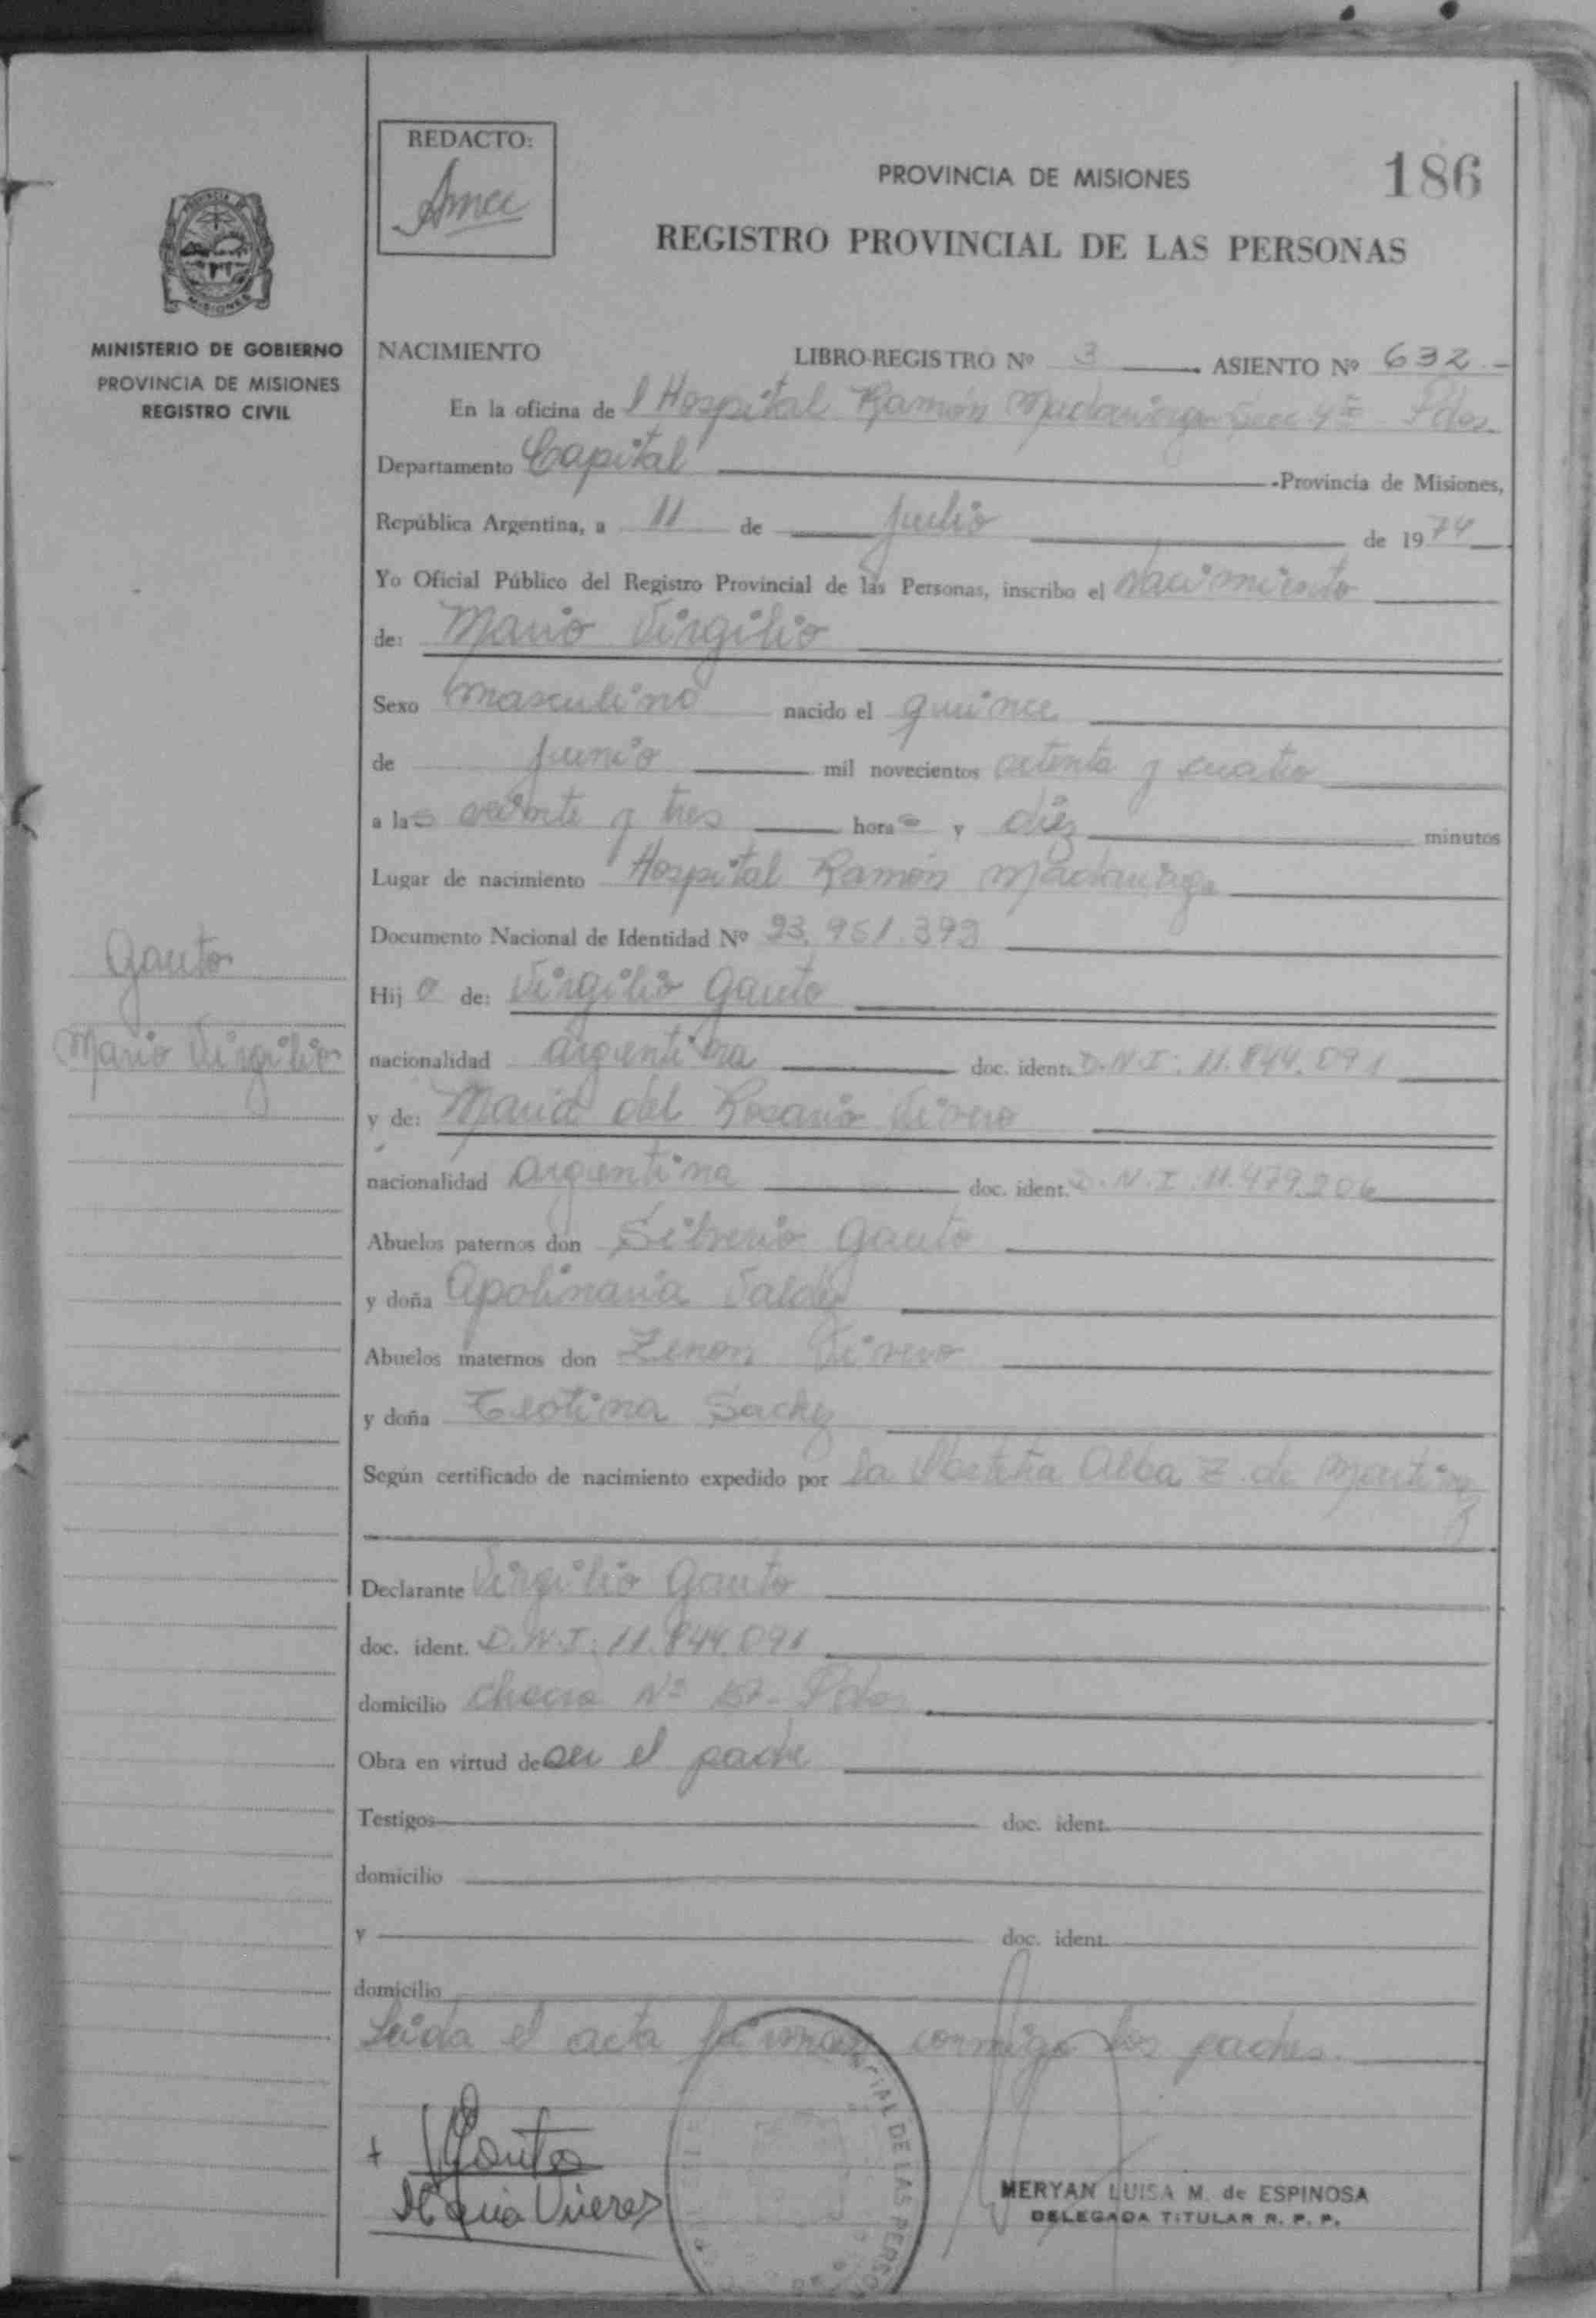 REDACTO:
PROVINCIA DE MISIONES
186
REGISTRO PROVINCIAL DE LAS PERSONAS
MINISTERIO DE GOBIERNO
PROVINCIA DE MISIONES
REGISTRO CIVIL
NACIMIENTO LIBRO-REGISTRO Nº 3 ASIENTO Nº 632
En la oficina de l Hospital Ramón Madariaga Secc 4ª Pdas.
Departamento Capital -Provincia de Misiones,
República Argentina, a 11 de Julio de 1974
Yo Oficial Público del Registro Provincial de las Personas, inscribo el nacimiento
de: Mario Virgilio
Sexo masculino nacido el quince
de junio mil novecientos setenta y cuatro
a las veinte y tres horas y diez minutos
Lugar de nacimiento Hospital Ramón Madariaga
Documento Nacional de Identidad Nº 23.951.393
Gauto
Mario Virgilio
Hijo de: Virgilio Gauto
nacionalidad argentina doc. ident. D.N.I. 11.844.091
y de: Maria del Rosario Vivero
nacionalidad argentina doc. ident. D.N.I. 11.479.206
Abuelos paternos don Silverio Gauto
y doña Apolinaria Valdez
Abuelos maternos don Zenon Vivero
y doña Teotina
Según certificado de nacimiento expedido por la Obstetra Alba Z. de Martinez
Declarante Virgilio Gauto
doc. ident. D.N.I. 11.844.091
domicilio chacra Nº 157 - Pdas
Obra en virtud de ser el padre
Testigos doc. ident.
domicilio
y doc. ident.
domicilio
Leida el acta firman conmigo los padres.
VGauto
Maria Viveros
CIAL DE LAS PERSO
MERYAN LUISA M. de ESPINOSA
DELEGADA TITULAR R. P. P.